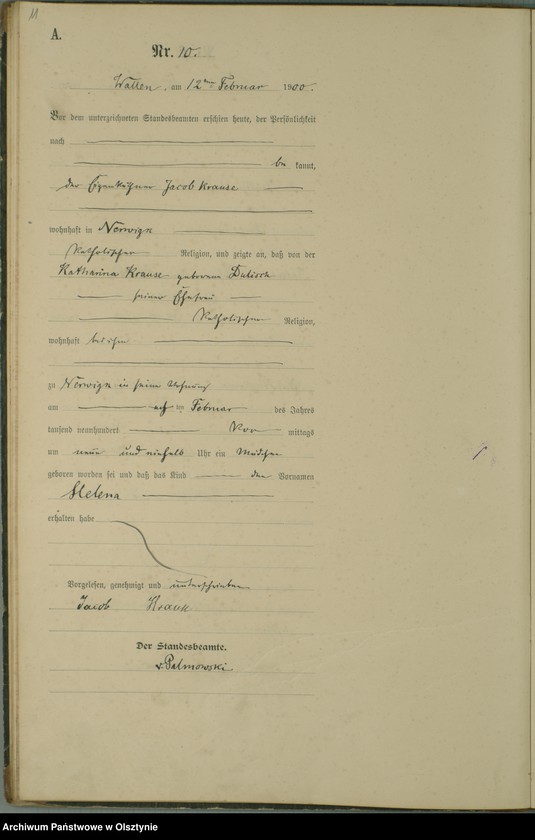 11
A.
Nr. 10.
am 12ten Februar 1900.
Vor dem unterzeichneten Standesbeamten erschien heute, der Persönlichkeit
nach
be kannt,
der Eigenkäthner Jacob Krause
wohnhaft in Nerwigk
katholischer Religion, und zeigte an, daß von der
Katharina Krause geborene
seiner Ehefrau
katholischer Religion,
wohnhaft bei ihm
zu Nerwigk in seiner Wohnung
am acht ten Februar des Jahres
tausend neunhundert Vor mittags
um neun und einhalb Uhr ein Mädchen
geboren worden sei und daß das Kind den Vornamen
Helena
erhalten habe
Vorgelesen, genehmigt und unterschrieben
Jacob Krause
Der Standesbeamte.
v. Palmowski
Archiwum Państwowe w Olsztynie